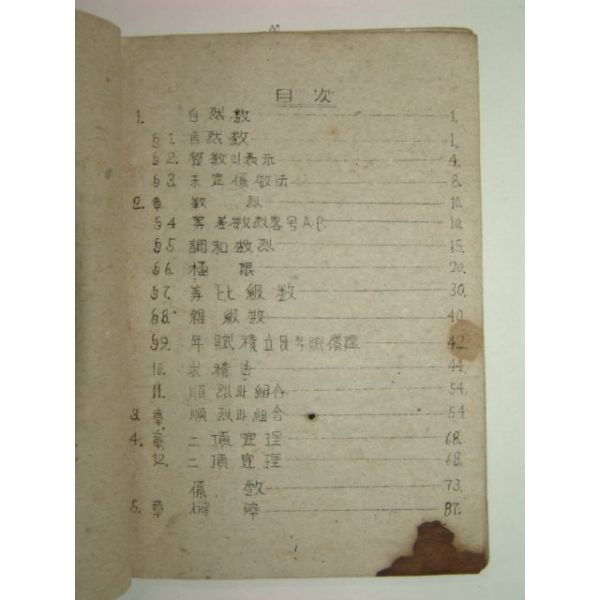 目次
1. 自然数 1.
§1. 自然数 1.
§2. 整数의表示 4.
§3. 未定係数法 8.
2. 章 数烈 10.
§4 等差数烈 記号 A.P. 10.
§5 調和数烈 15.
§6. 極限 20.
§7. 等比級数 30.
§8. 雑級数 40.
§9. 年賦積立及年賦償還 42.
10. 求積法 44.
11. 順烈과組合 54.
3. 章 順烈과組合 54
4. 章 二項定理 68.
12. 二項定理 68.
係数 73.
5. 章 確率 87.
1